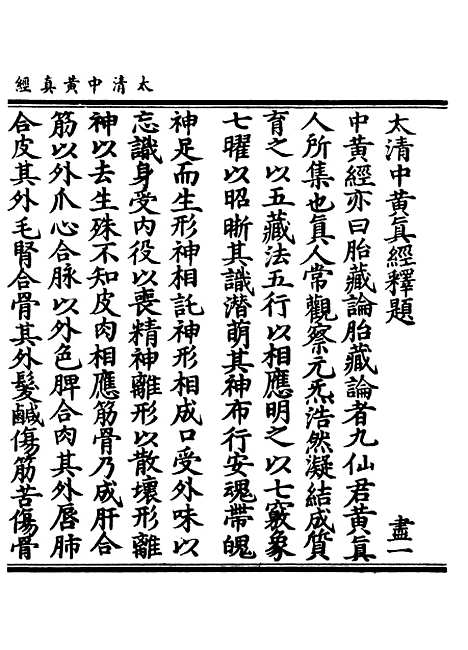 太清中黄真經
太清中黄真經釋題　盡一
中黄經亦曰胎藏論胎藏論者九仙君黄真
人所集也真人常觀察元炁浩然凝結成質
育之以五藏法五行以相應明之以七竅象
七曜以昭晰其識潜萌其神布行安魂帶魄
神足而生形神相託神形相成口受外味以
忘識身受内役以喪精神離形以散壞形離
神以去生殊不知皮肉相應筋骨乃成肝合
筋以外爪心合脉以外色脾合肉其外唇肺
合皮其外毛腎合骨其外髮鹹傷筋苦傷骨